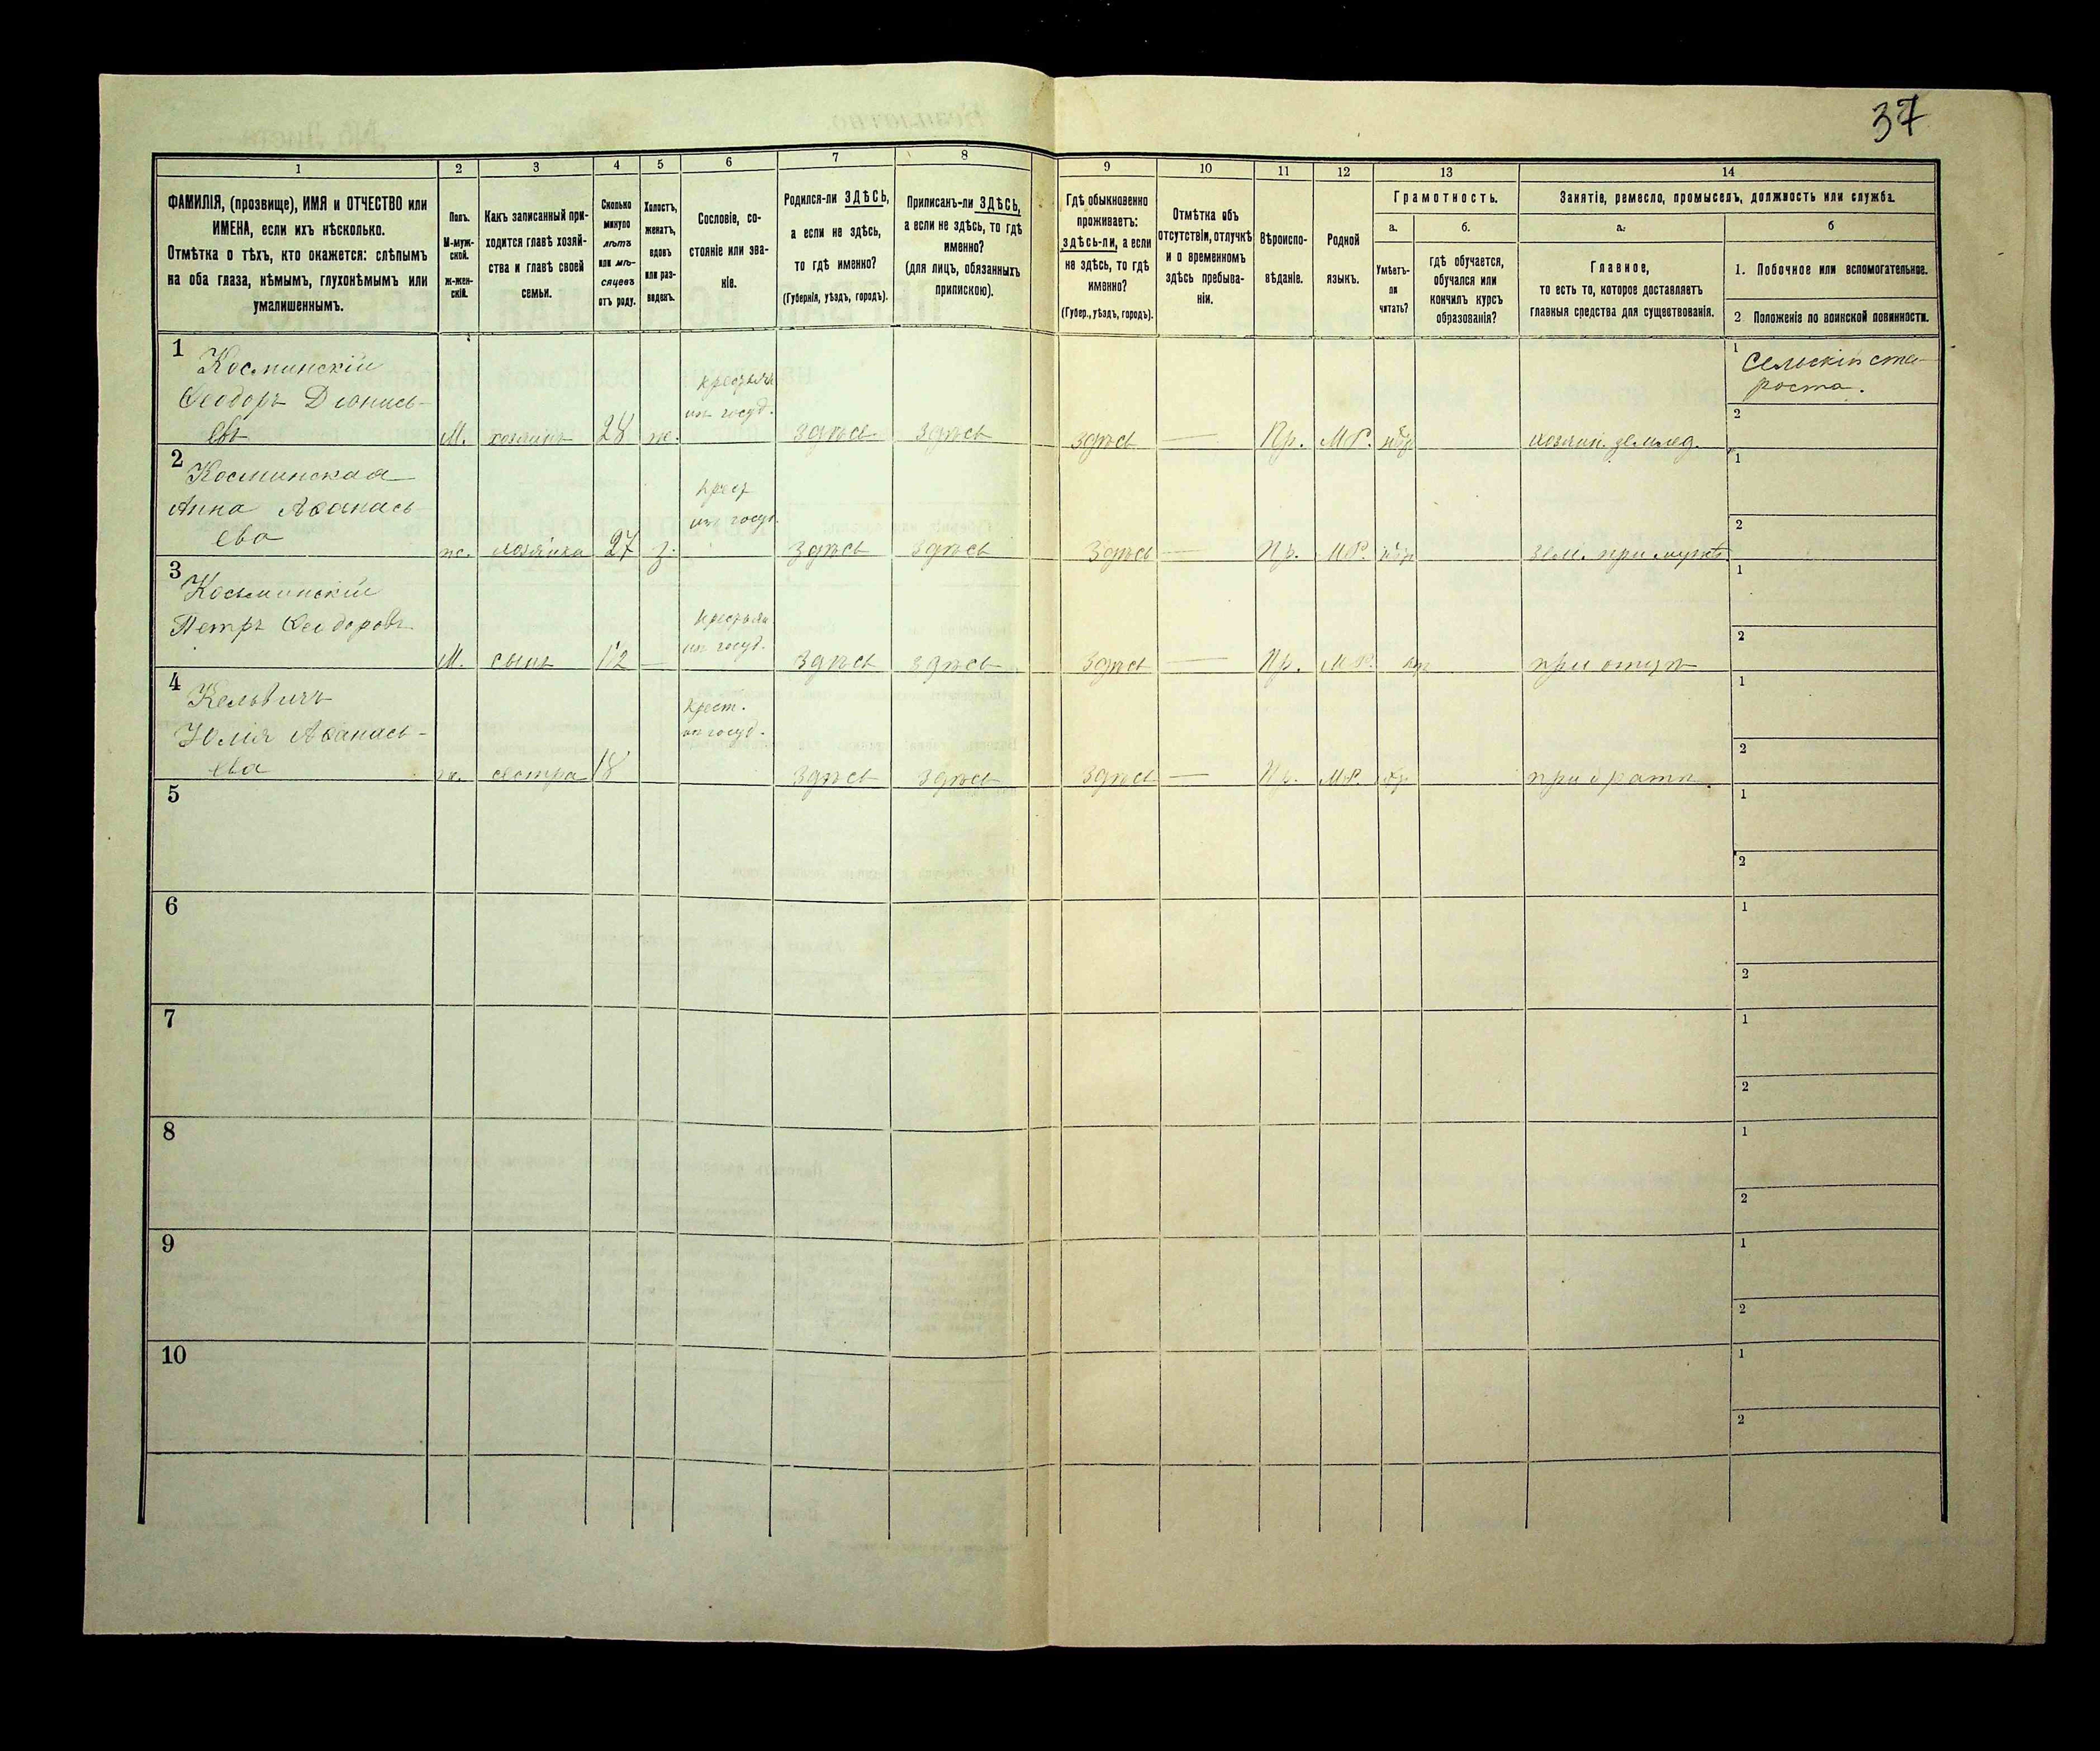 37
1
2
3
4
5
6
7
8
9
10
11
12
13
14
ФАМИЛІЯ, (прозвище), ИМЯ и ОТЧЕСТВО или
ИМЕНА, если ихъ нѣсколько.
Отмѣтка о тѣхъ, кто окажется: слѣпымъ
на оба глаза, нѣмымъ, глухонѣмымъ или
умалишеннымъ.
Полъ.
М-муж-
ской.
ж-жен-
скій.
Какъ записанный при-
ходится главѣ хозяй-
ства и главѣ своей
семьи.
Сколько
минуло
лѣтъ
или мѣ-
сяцевъ
отъ роду.
Холостъ,
женатъ,
вдовъ
или раз-
веденъ.
Сословіе, со-
стояніе или зва-
ніе.
Родился-ли ЗДѢСЬ,
а если не здѣсь,
то гдѣ именно?
(Губернія, уѣздъ, городъ).
Приписанъ-ли ЗДѢСЬ,
а если не здѣсь, то гдѣ
именно?
(для лицъ, обязанныхъ
припискою).
Гдѣ обыкновенно
проживаетъ:
здѣсь-ли, а если
не здѣсь, то гдѣ
именно?
(Губер., уѣздъ, городъ).
Отмѣтка объ
отсутствіи, отлучкѣ
и о временномъ
здѣсь пребыва-
ніи.
Вѣроиспо-
вѣданіе.
Родной
языкъ.
Грамотность.
а.
б.
Умѣетъ-
ли
читать?
гдѣ обучается,
обучался или
кончилъ курсъ
образованія?
Занятіе, ремесло, промыселъ, должность или служба.
а.
б
Главное,
то есть то, которое доставляетъ
главныя средства для существованія.
1. Побочное или вспомогательное.
2 Положеніе по воинской повинности.
1
Косминскій
Ѳеодоръ Діонись-
евъ
М. хозяинъ 28 ж.
крестьян
изъ госуд.
здѣсь здѣсь здѣсь — Пр. М.Р.
хозяин. землед.
1 Сельскій ста-
роста.
2
2
Косминская
Анна Аѳанась
ева
ж. хозяйка 27 з.
крест
изъ госуд.
здѣсь здѣсь здѣсь — Пр. М.Р.
зем. при мужѣ
1
2
3
Косьминскій
Петръ Ѳеодоровъ
М. сынъ 1/2 —
крестьян
изъ госуд.
здѣсь здѣсь здѣсь — Пр. М.Р.
при отцѣ
1
2
4
Кельвичъ
Юлія Аѳанась-
ева
ж. сестра 18
крест.
из госуд.
здѣсь здѣсь здѣсь — Пр. М.Р.
при братѣ
1
2
5
1
2
6
1
2
7
1
2
8
1
2
9
1
2
10
1
2